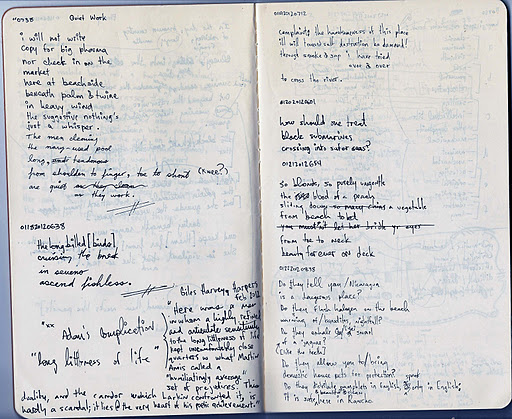 "0738 Quiet Work
i will not write
copy for big pharma
nor check in on the
market
here at beachside
beneath palm & twine
in heavy wind
the suggestive nothing's
just a whisper.
The men cleaning
the many-used pool
long, and tendonous
from shoulder to finger, toe to shont (knee?)
are quiet as they clean
as they work.
011820120638
the long billed [birds],
cruising the break
in seveno
ascend fishless.
Giles Harvey, Harpers
Feb 2012
"Here was a man
in whom a highly refined
and articulate sensitivity
to the long littleness of life
kept uncomfortably close
quarters w what Martin
Amis called a
"humiliatingly average"
set of prejudices. This
duality, and the candor which Larkin confronted it, is
hardly a scandal; it lies @ the very heart of his poetic achievement."
"xx Adam's Complication
"long littleness of life"
011820120712
complaints the handsomeness of this place
ill will toward salt destination be demand!
through smoke & sup i have tried
over & over
to cross the river.
012020120601
how should one treat
black submarines
crossing into sutor seas?
012120120654
So blonde, so purely ungentle
the blood of a peach
sliding down so many chins a vegetable
from beach to bed
you mustn't let her bridle yr eyes
from toe to neck
beauty forever on deck
012120120835
Do they tell you / Nicaragua
is a dangerous place?
Do they flash halogen on the beach
warning of / banditos, nightfall?
Do they exhale at a smell
of a jaguar?
[like the turtle]
Do they allow you to/bring
domestic house pets for protection?
Do they complain in English, only in English,
it is somewhere in Rancho